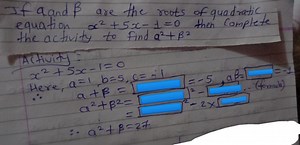 If α and β are the roots of quadratic
equation x²+5x-1=0 then complete
the activity to find α²+β²
Activity:
x²+5x-1=0
Here, a=1, b=5, c=-1
∴ α+β = = -5, αβ = -1
α²+β² = ² - (formula)
= ² - 2×
∴ α²+β=27